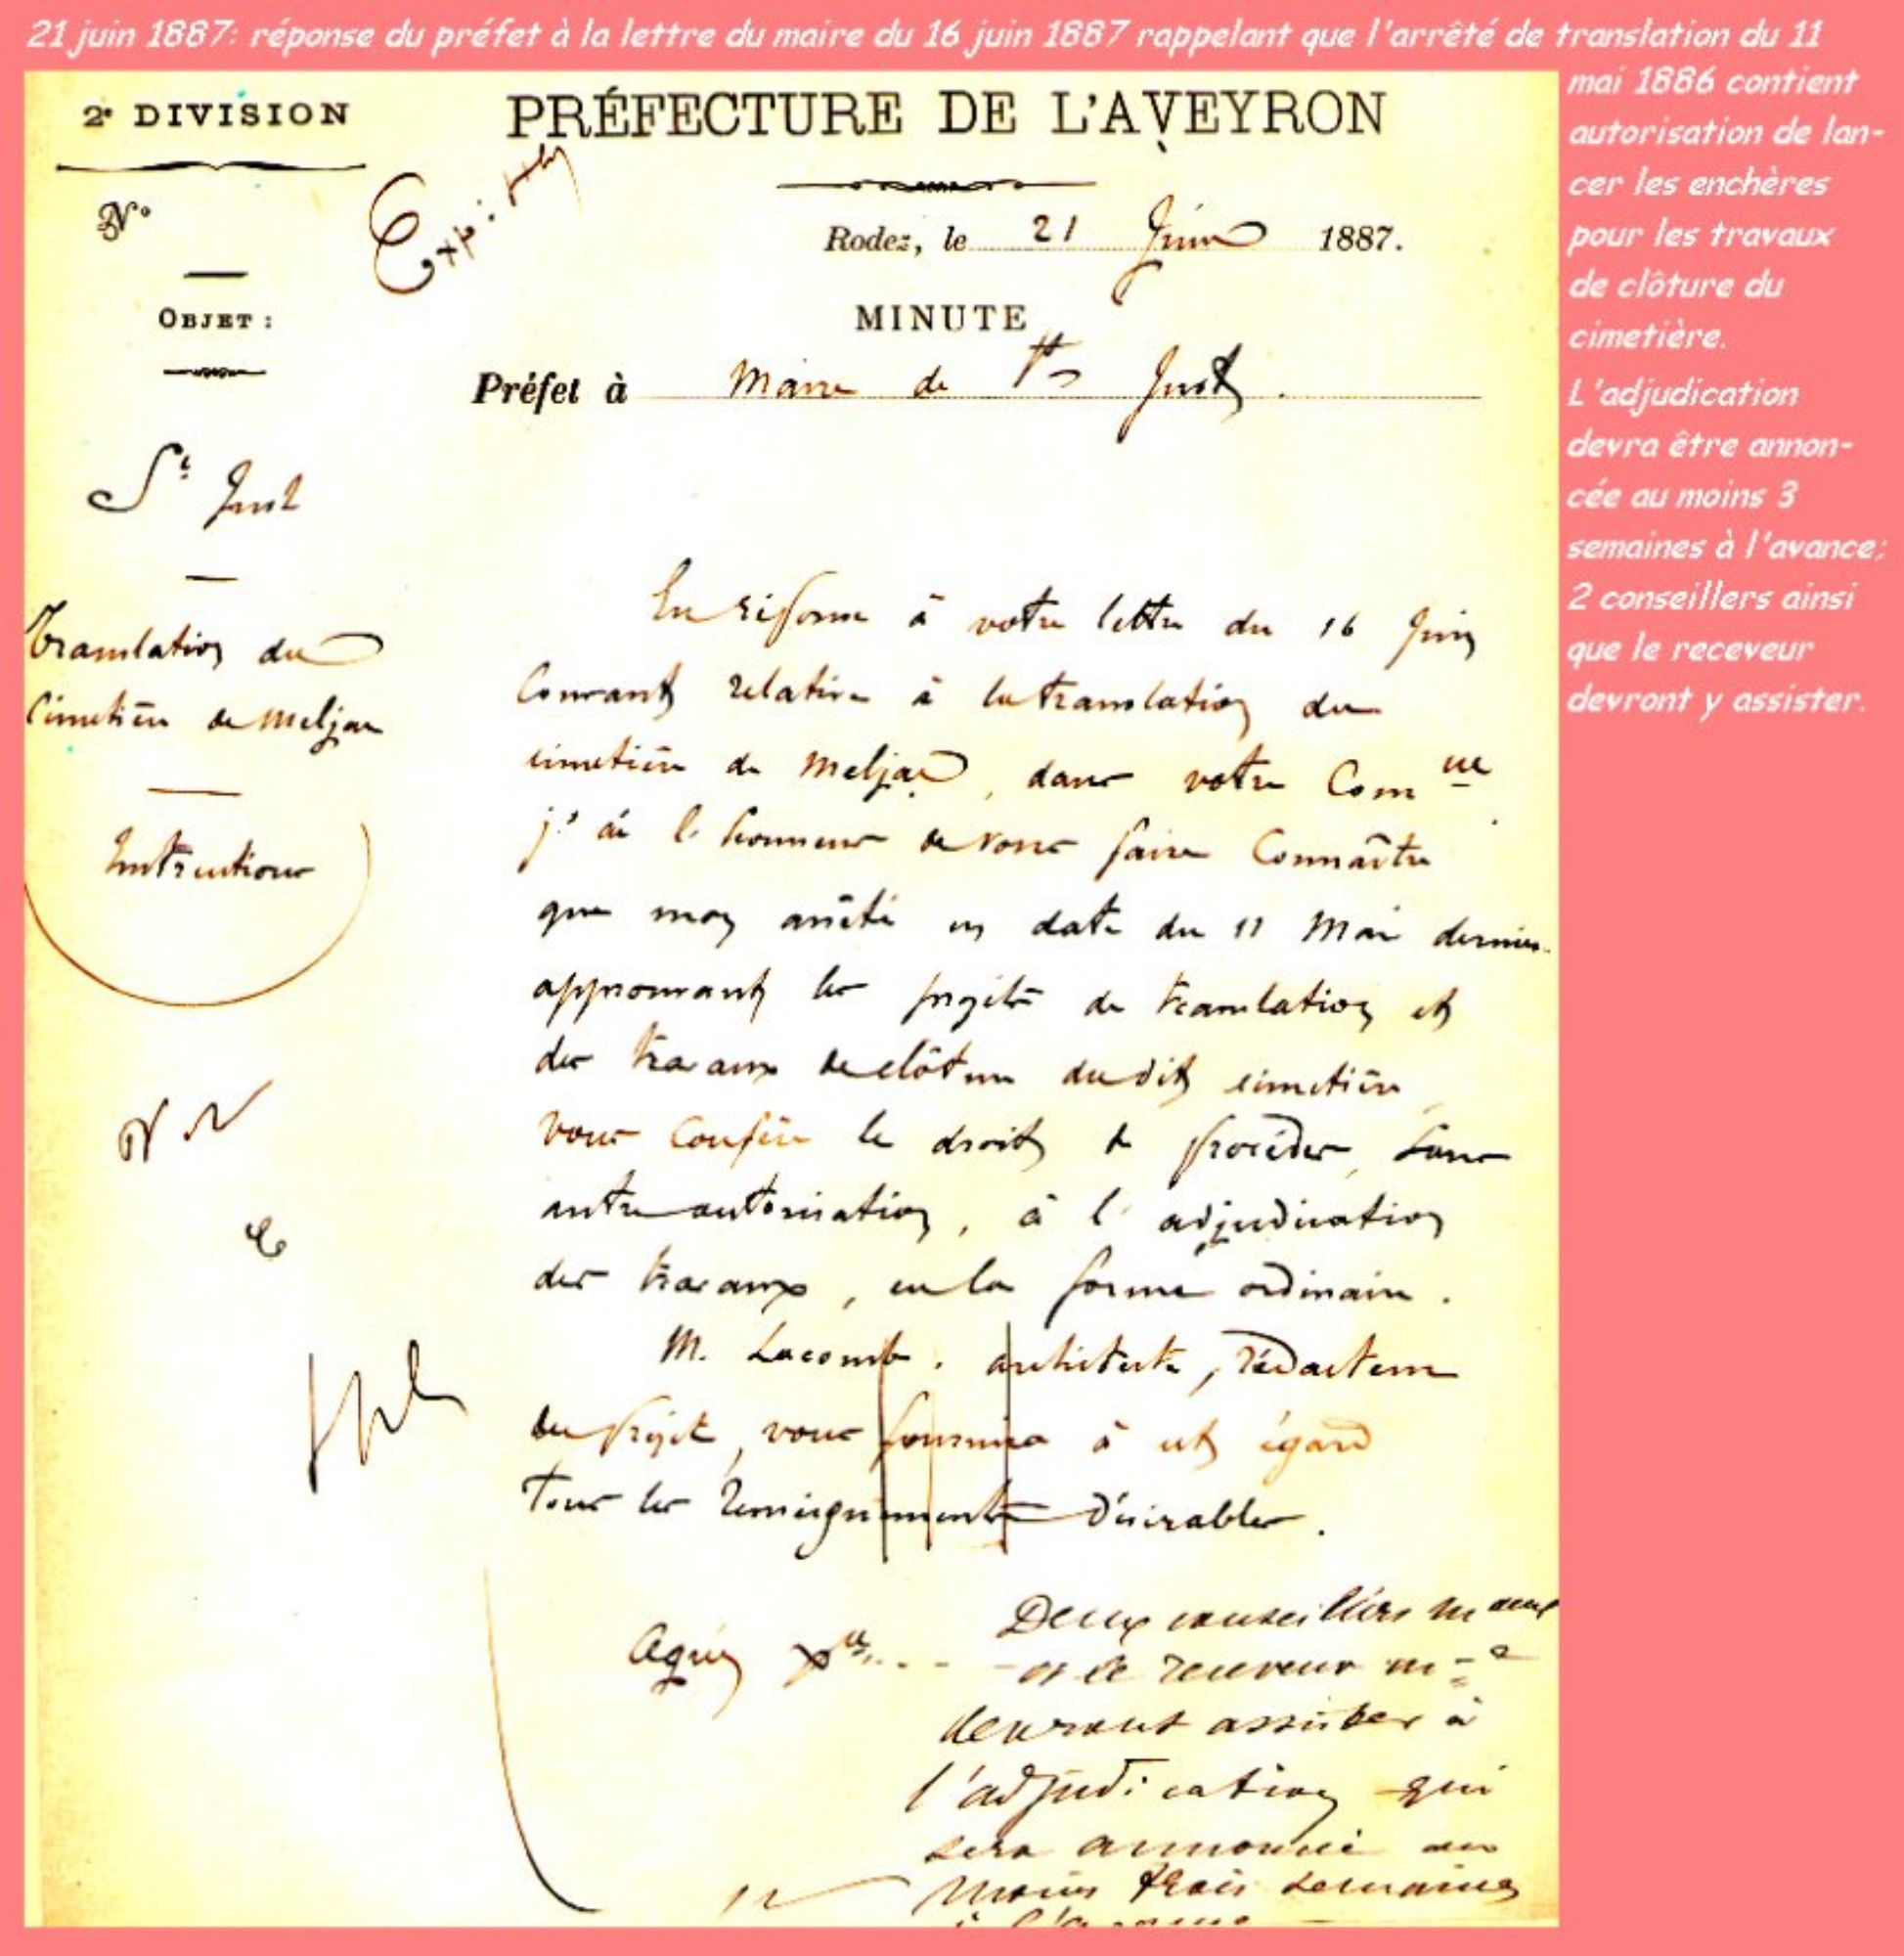 21 juin 1887: réponse du préfet à la lettre du maire du 16 juin 1887 rappelant que l'arrêté de translation du 11
mai 1886 contient
autorisation de lan-
cer les enchères
pour les travaux
de clôture du
cimetière.
L'adjudication
devra être annon-
cée au moins 3
semaines à l'avance;
2 conseillers ainsi
que le receveur
devront y assister.
2e DIVISION
PRÉFECTURE DE L'AVEYRON
No
Rodez, le 21 Juin 1887.
OBJET :
MINUTE
Préfet à Maire de St Just.
St Just
Translation du
Cimetière de Meljac
Instructions
En réponse à votre lettre du 16 Juin
Courant relative à la translation du
cimetière de Meljac, dans votre Comne
j'ai l'honneur de vous faire Connaître
que mon arrêté en date du 11 Mai dernier
approuvant les projets de translation et
des travaux de clôture dudit cimetière
vous Confère le droit de procéder, sans
autre autorisation, à l'adjudication
des travaux, en la forme ordinaire.
M. Lacombe, architecte, rédacteur
du projet, vous fournira à cet égard
Tous les renseignements désirables.
Agréez
Deux conseillers maux
et le receveur
devront assister à
l'adjudication qui
sera annoncée au
moins trois semaines
à l'avance